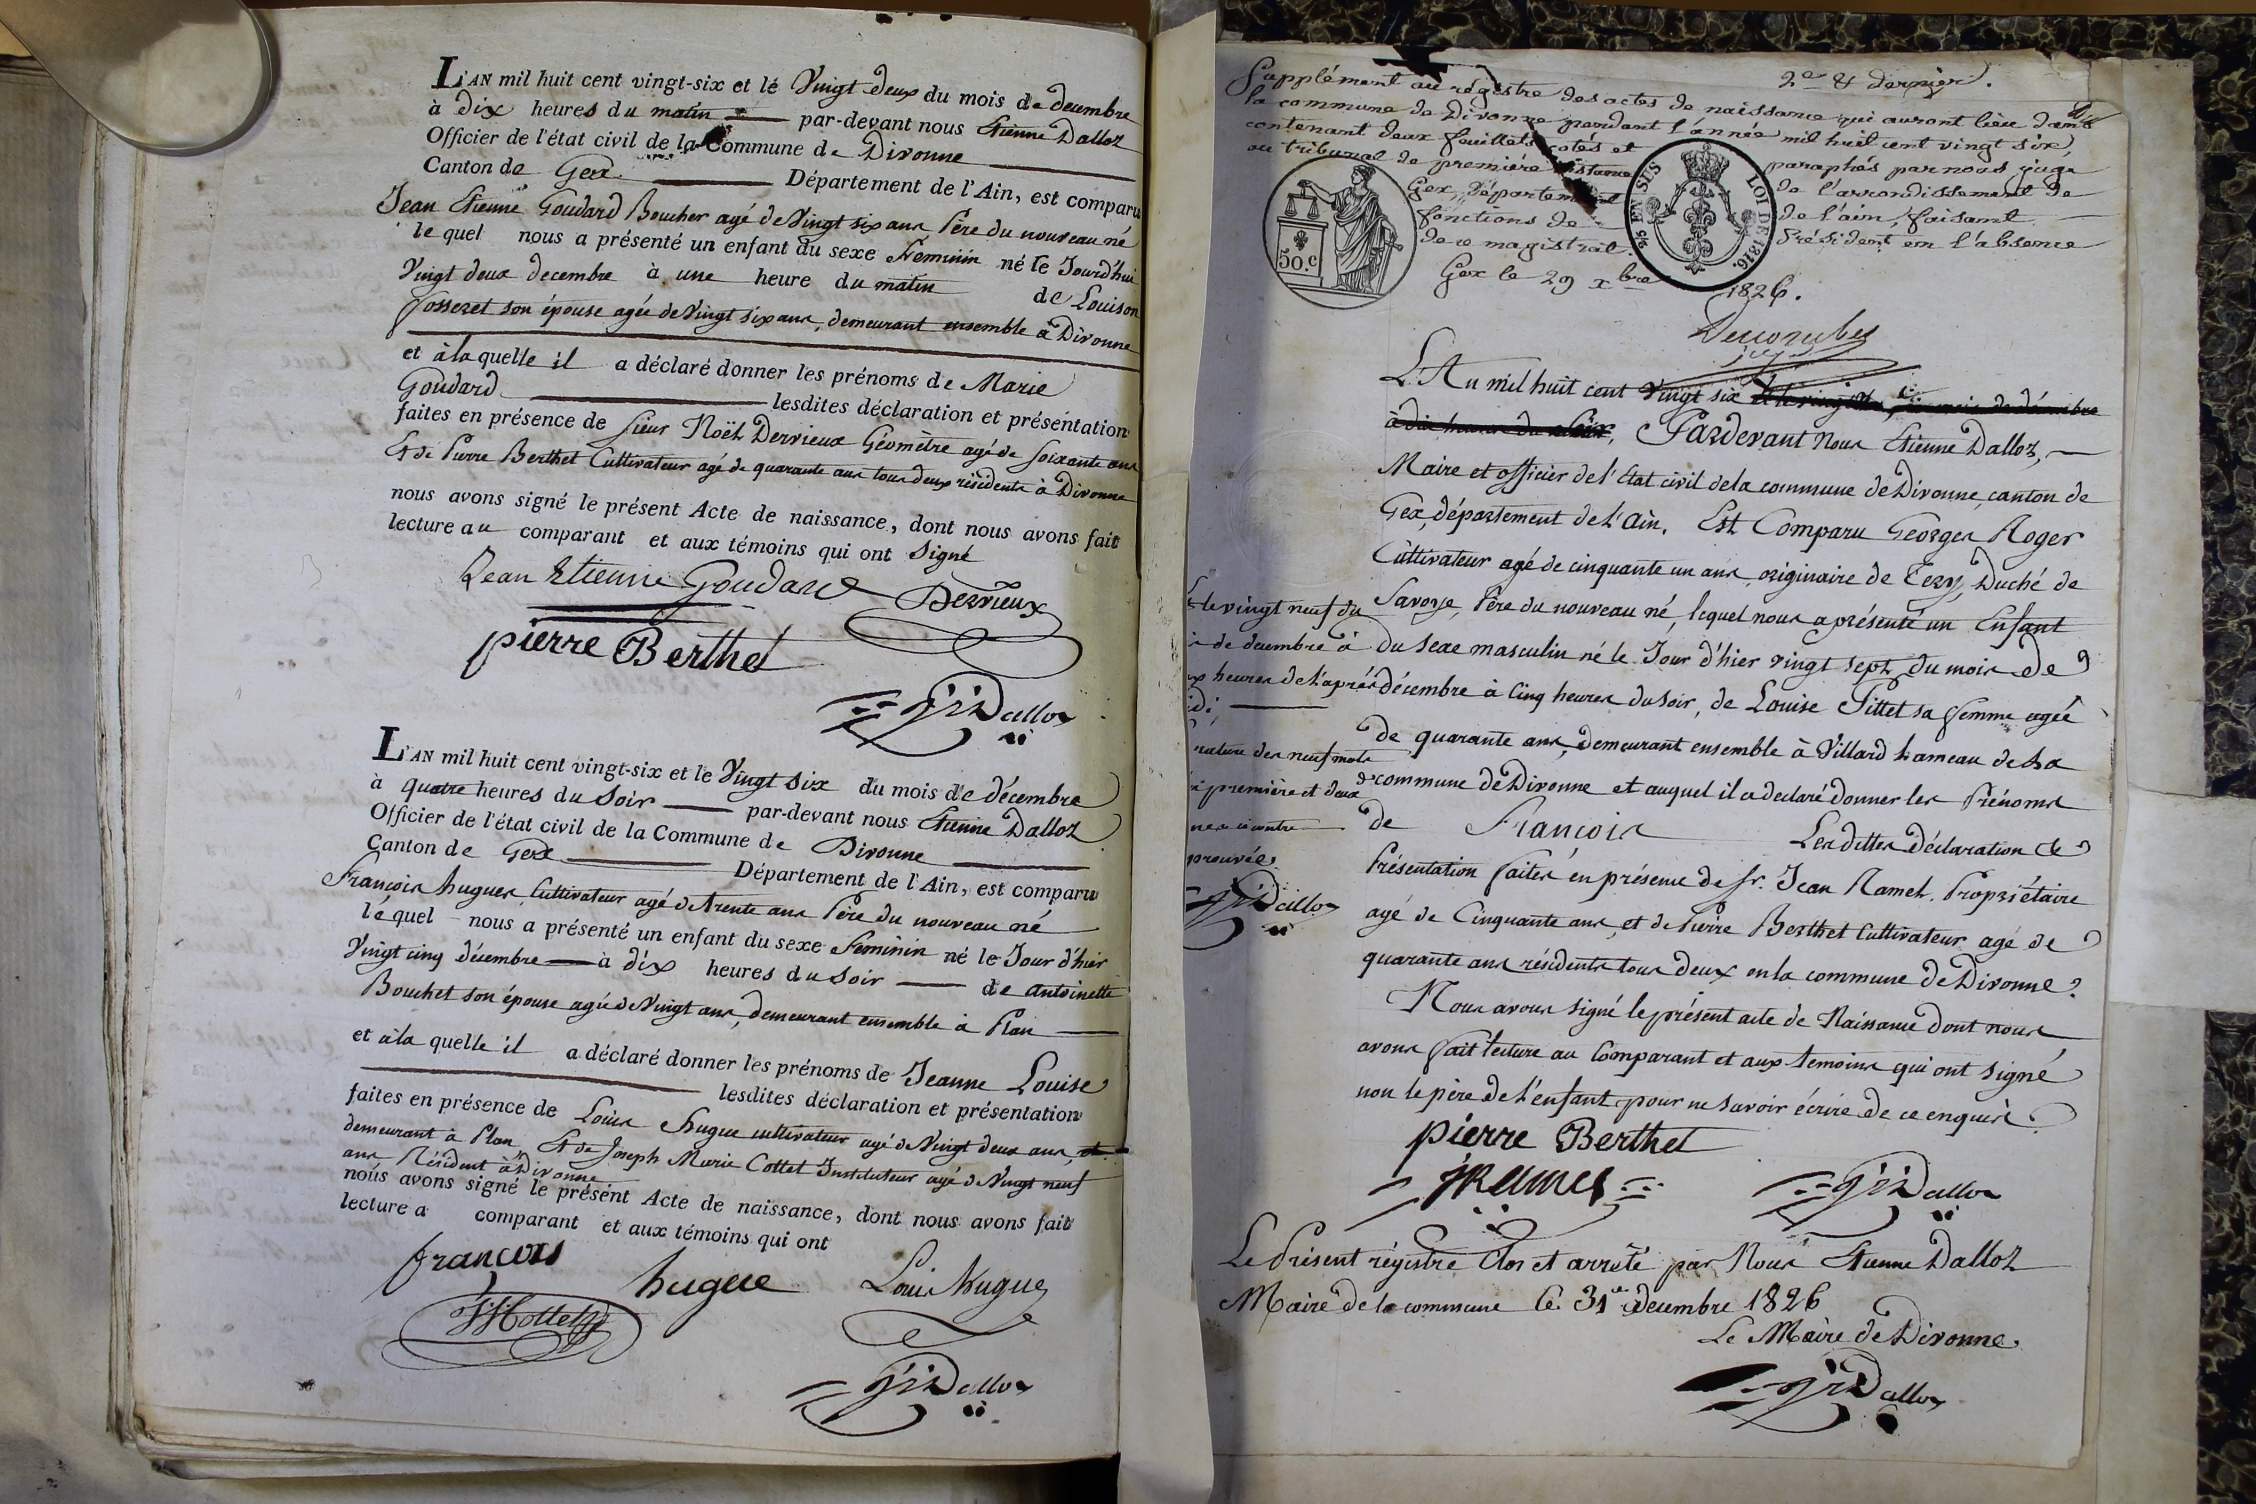 L'AN mil huit cent vingt-six et le Vingt deux du mois de decembre
à Dix heures du matin par-devant nous Etienne Dalloz
Officier de l'état civil de la Commune de Divonne
Canton de Gex Département de l'Ain, est comparu
Jean Etienne Goudard Boucher agé de Vingt six ans Père du nouveau né
le quel nous a présenté un enfant du sexe Feminin né le Jourd'hui
Vingt deux decembre à une heure du matin de Louison
Josseret son épouse agée de Vingt six ans, demeurant ensemble à Divonne
et à la quelle il a déclaré donner les prénoms de Marie
Goudard lesdites déclaration et présentation
faites en présence de Sieur Noël Dervieux Géomètre agé de soixante ans
Et de Pierre Berthet Cultivateur agé de quarante ans tous deux résidents à Divonne
nous avons signé le présent Acte de naissance, dont nous avons fait
lecture au comparant et aux témoins qui ont signé
Jean Etienne Goudard Dervieux
pierre Berthet
Dalloz
L'AN mil huit cent vingt-six et le Vingt six du mois de décembre
à quatre heures du soir par-devant nous Etienne Dalloz
Officier de l'état civil de la Commune de Divonne
Canton de Gex Département de l'Ain, est comparu
François hugues Cultivateur agé de trente ans Père du nouveau né
le quel nous a présenté un enfant du sexe Feminin né le Jour d'hier
Vingt cinq décembre à dix heures du soir de antoinette
Bouchet son épouse agée de Vingt ans, demeurant ensemble à Plan
et à la quelle il a déclaré donner les prénoms de Jeanne Louise
lesdites déclaration et présentation
faites en présence de Louis hugue cultivateur agé de Vingt deux ans,
demeurant à Plan Et de Joseph Marie Cottet Instituteur agé de Vingt neuf
ans Résident à Divonne
nous avons signé le présent Acte de naissance, dont nous avons fait
lecture a comparant et aux témoins qui ont
françois hugue Louis Hugue
Cottet
Dalloz
2e & dernier.
Supplément au régistre des actes de naissance qui auront lieu dans
la commune de Divonne pendant l'année mil huit cent vingt six,
contenant deux feuillets cotés et paraphés par nous juge
au tribunal de première instance de l'arrondissement de
Gex, département de l'ain, faisant
fonctions de Président en l'absence
de ce magistrat.
Gex le 29 xbre 1826.
50.c
EN SUS
LOI DE 1816.
L'An mil huit cent Vingt six
à dix heures du soir, Pardevant Nous Etienne Dalloz,
Maire et officier de l'Etat civil de la commune de Divonne, canton de
Gex, département de l'Ain, Est Comparu Georges Roger
Cultivateur agé de cinquante un ans, originaire de Cezy, Duché de
Savoye, Père du nouveau né, lequel nous a présenté un Enfant
du sexe masculin né le Jour d'hier vingt sept du mois de
décembre à Cinq heures du soir, de Louise Pittet sa femme agée
de quarante ans, demeurant ensemble à Villard hameau de La
commune de Divonne et auquel il a declaré donner les Prénoms
de François Les dittes déclaration &
Présentation faites en présence de Sr. Jean Ramel Propriétaire
agé de Cinquante ans, et de Pierre Berthet Cultivateur agé de
quarante ans résidents tous deux en la commune de Divonne.
Nous avons signé le présent acte de Naissance dont nous
avons fait lecture au Comparant et aux temoins qui ont signé
non le père de l'enfant pour ne savoir écrire de ce enquis
le vingt neuf du
de decembre à
heures de l'après
di
rature des neuf mots
première et deux
ci contre
prouvée
Dalloz
pierre Berthet
JRamel Dalloz
Le Présent régistre Clos et arrêté par Nous Etienne Dalloz
Maire de la commune le 31e decembre 1826
Le Maire de Divonne
Dalloz